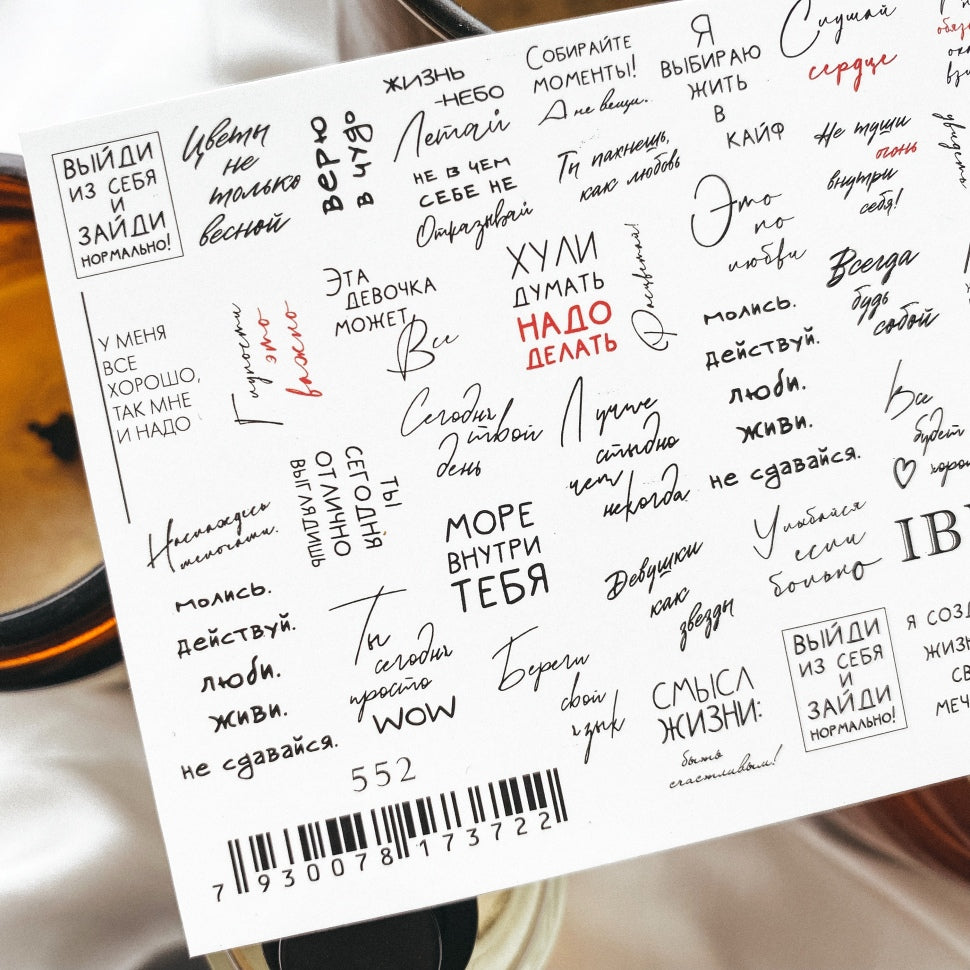 ВЫЙДИ
ИЗ СЕБЯ
И
ЗАЙДИ
НОРМАЛЬНО!
Цветы
не
только
весной
верю
в чудо
ЖИЗНЬ
-НЕБО
Летай
НЕ В ЧЕМ
СЕБЕ НЕ
Отказывай
СОБИРАЙТЕ
МОМЕНТЫ!
А не вещи.
Ты пахнешь,
как любовь
Я
ВЫБИРАЮ
ЖИТЬ
В
КАЙФ
Слушай
сердце
Не туши
огонь
внутри
себя!
У МЕНЯ
ВСЕ
ХОРОШО,
ТАК МНЕ
И НАДО
Глупости
это
важно
ЭТА
ДЕВОЧКА
МОЖЕТ
Все
ХУЛИ
ДУМАТЬ
НАДО
ДЕЛАТЬ
Расцветай!
Это
по
любви
Всегда
будь
собой
молись.
действуй.
люби.
живи.
не сдавайся.
Сегодня
твой
день
Лучше
стыдно
чем
никогда
Все
будет
Наслаждайся
мелочами.
ТЫ
СЕГОДНЯ
ОТЛИЧНО
ВЫГЛЯДИШЬ
МОРЕ
ВНУТРИ
ТЕБЯ
Девушки
как
звезды
Улыбайся
если
больно
молись.
действуй.
люби.
живи.
не сдавайся.
Ты
сегодня
просто
WOW
Береги
свой
язык
СМЫСЛ
ЖИЗНИ:
быть
счастливым!
ВЫЙДИ
ИЗ СЕБЯ
И
ЗАЙДИ
НОРМАЛЬНО!
Я
552
7 930078 173722